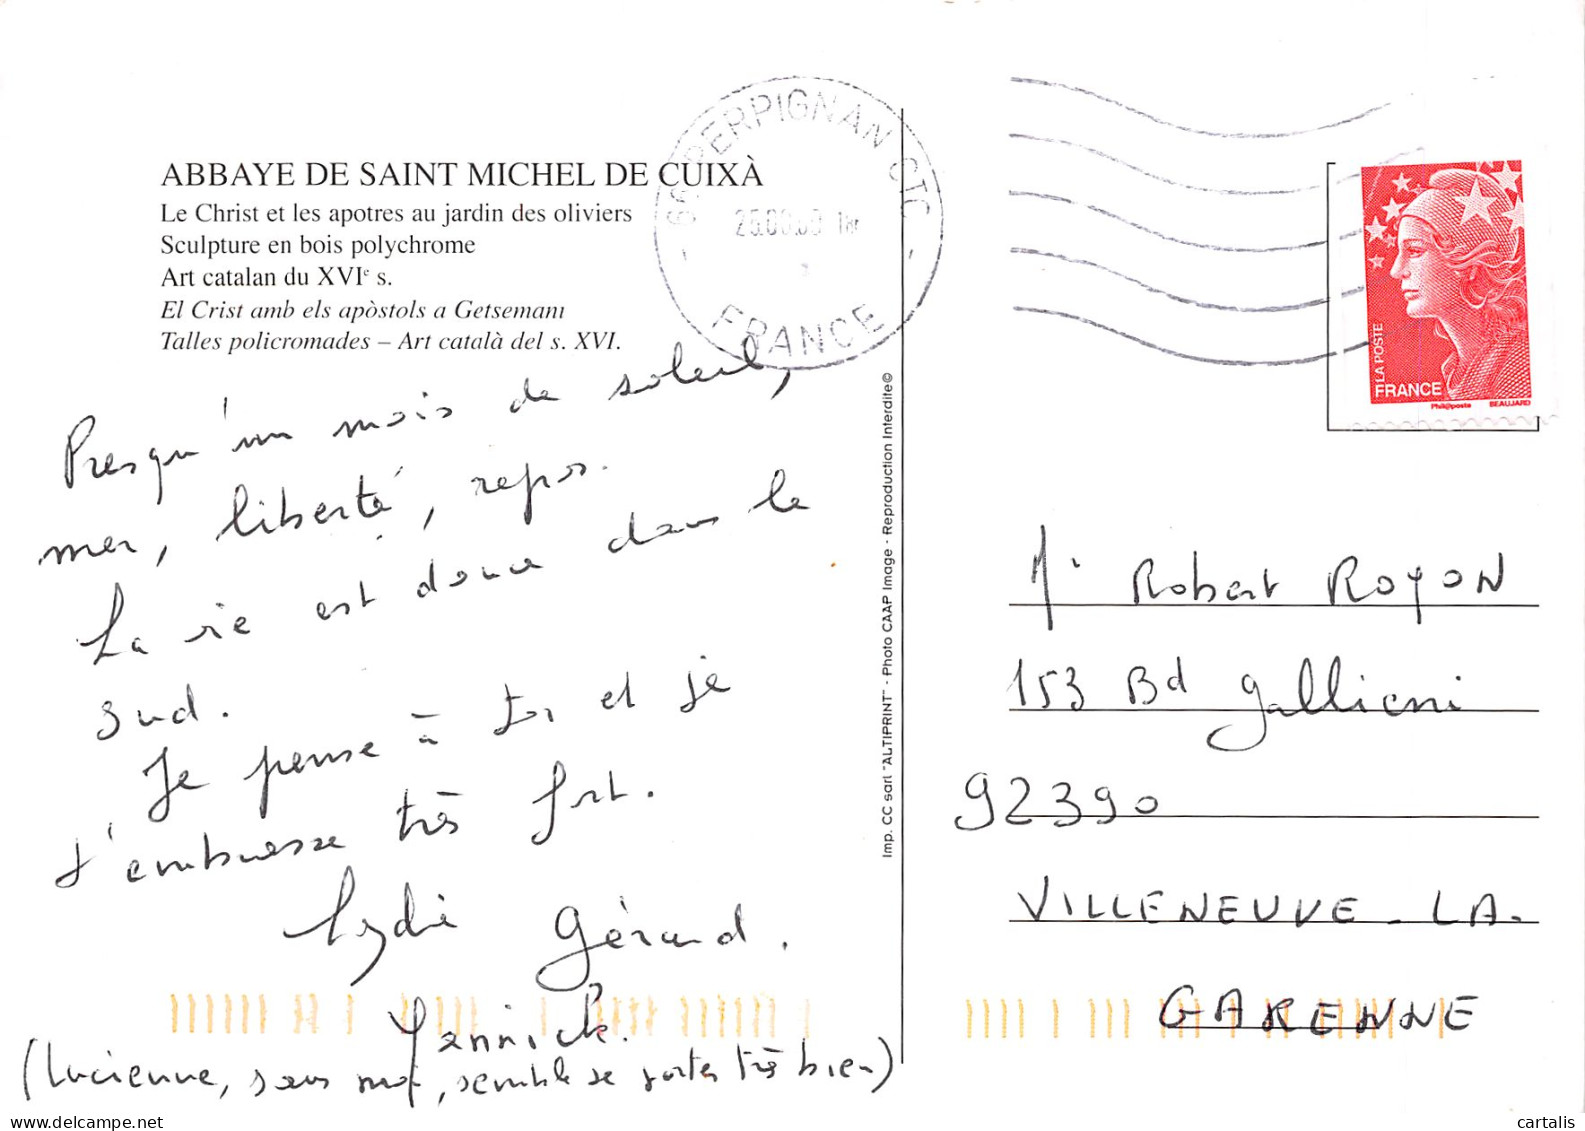 ABBAYE DE SAINT MICHEL DE CUIXÀ
Le Christ et les apotres au jardin des oliviers
Sculpture en bois polychrome
Art catalan du XVIe s.
El Crist amb els apòstols a Getsemani
Talles policromades – Art català del s. XVI.
66 PERPIGNAN CTC
FRANCE
LA POSTE
FRANCE
Phil@poste BEAUJARD
Presqu'un mois de soleil,
mer, liberté, repos.
La vie est douce dans le
Sud.
Je pense à toi et je
t'embrasse très fort.
Lydie Gérard.
Yannick.
(Lucienne, sans moi, semble se porter très bien)
Imp. CC sarl "ALTIPRINT" - Photo CAAP Image - Reproduction Interdite©
Mr Robert ROYON
153 Bd Gallieni
92390
VILLENEUVE-LA-
GARENNE
www.delcampe.net
cartalis